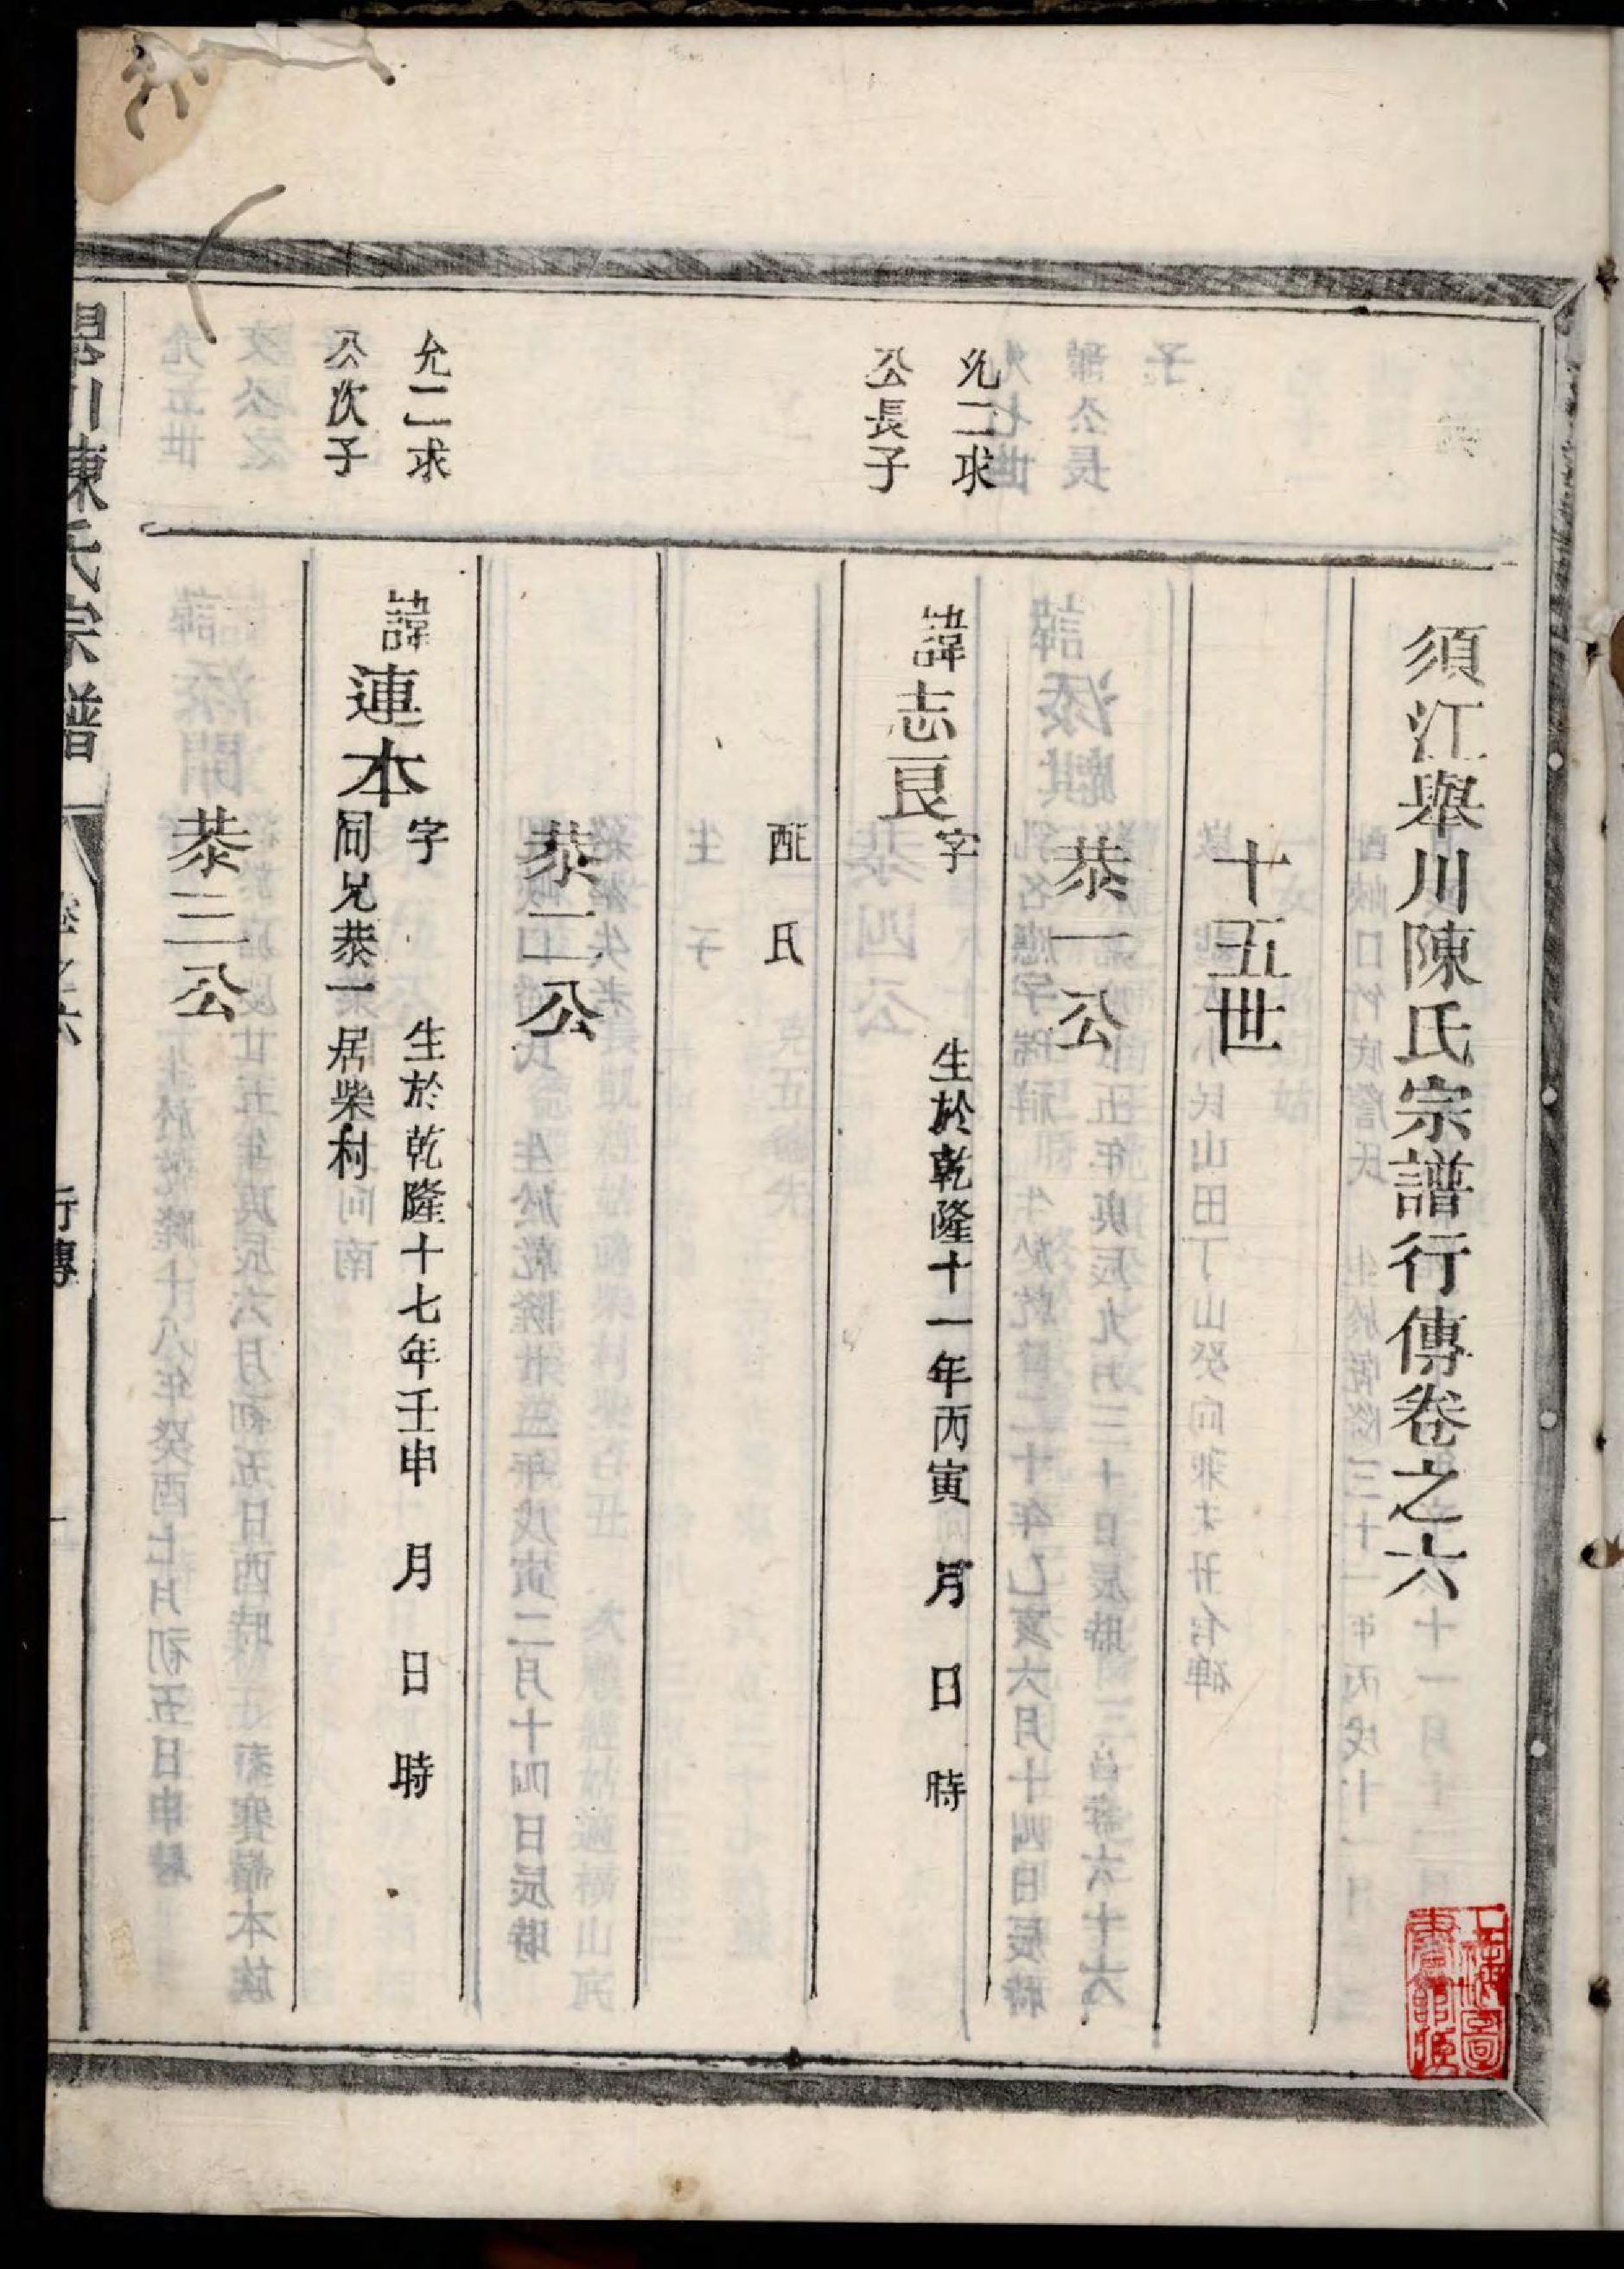 須江舉川陳氏宗譜行傳卷之六
十五世
恭一公
允二求
公長子
諱志良
字 生於乾隆十一年丙寅 月 日 時
配 氏
恭二公
允二求
公次子
諱連本
字 生於乾隆十七年壬申 月 日 時
同兄恭一居柴村
恭三公
川陳氏宗譜 卷之六 行傳